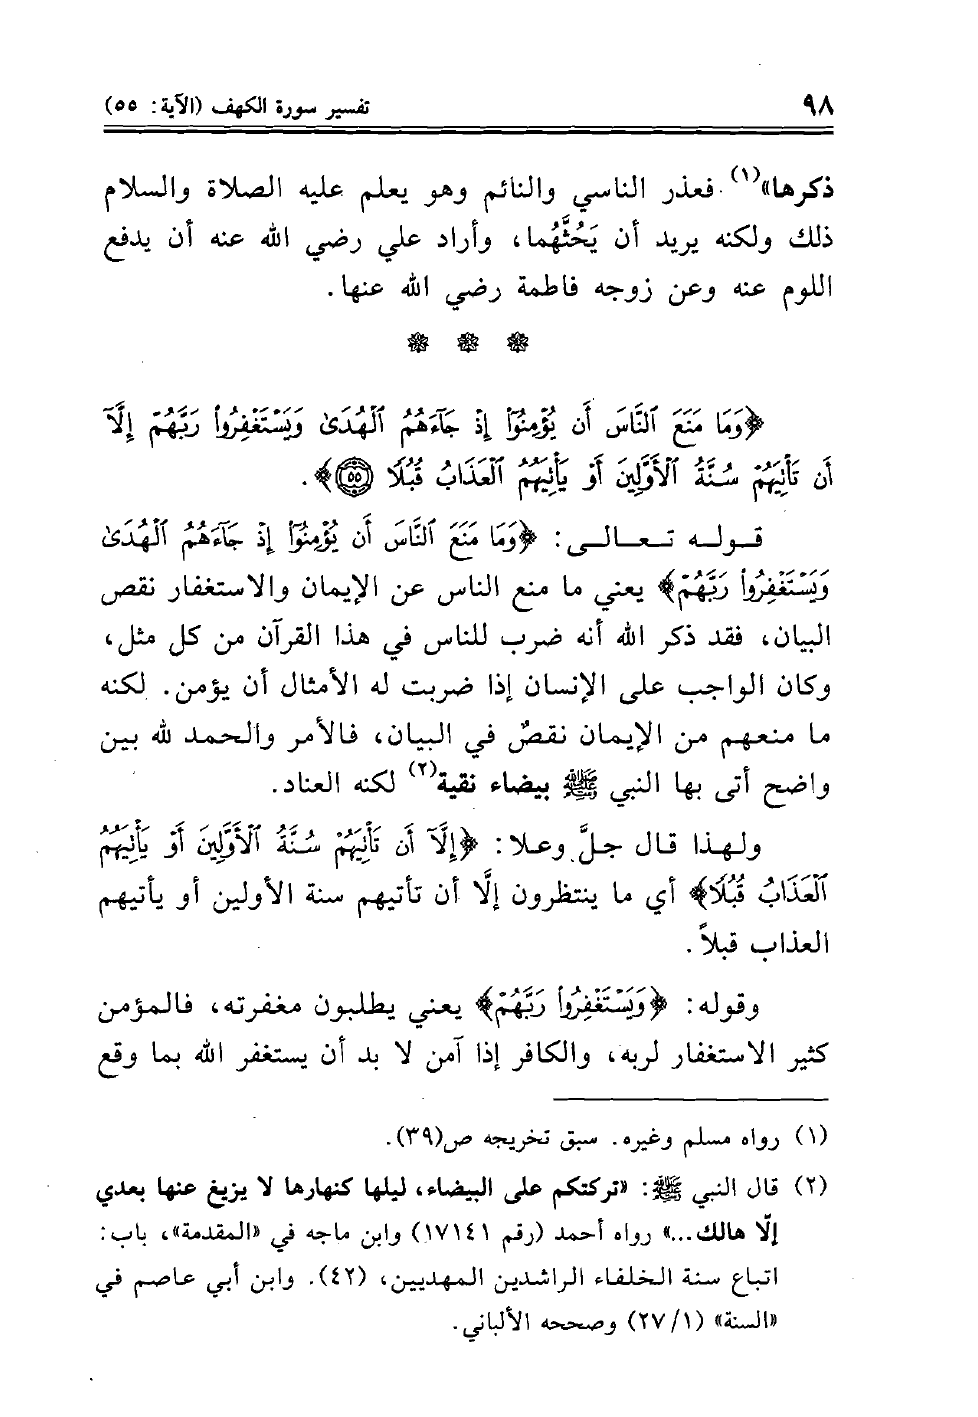 ٩٨ تفسير سورة الكهف (الآية: ٥٥)
ذكرها»(١). فعذر الناسي والنائم وهو يعلم عليه الصلاة والسلام
ذلك ولكنه يريد أن يَحُثَّهُما، وأراد علي رضي الله عنه أن يدفع
اللوم عنه وعن زوجه فاطمة رضي الله عنها.
﴿وَمَا مَنَعَ ٱلنَّاسَ أَن يُؤْمِنُوٓا۟ إِذْ جَآءَهُمُ ٱلْهُدَىٰ وَيَسْتَغْفِرُوا۟ رَبَّهُمْ إِلَّآ
أَن تَأْتِيَهُمْ سُنَّةُ ٱلْأَوَّلِينَ أَوْ يَأْتِيَهُمُ ٱلْعَذَابُ قُبُلًا ٥٥﴾.
قوله تعالى: ﴿وَمَا مَنَعَ ٱلنَّاسَ أَن يُؤْمِنُوٓا۟ إِذْ جَآءَهُمُ ٱلْهُدَىٰ
وَيَسْتَغْفِرُوا۟ رَبَّهُمْ﴾ يعني ما منع الناس عن الإيمان والاستغفار نقص
البيان، فقد ذكر الله أنه ضرب للناس في هذا القرآن من كل مثل،
وكان الواجب على الإنسان إذا ضربت له الأمثال أن يؤمن. لكنه
ما منعهم من الإيمان نقصٌ في البيان، فالأمر والحمد لله بين
واضح أتى بها النبي ﷺ بيضاء نقية(٢) لكنه العناد.
ولهذا قال جلَّ وعلا: ﴿إِلَّآ أَن تَأْتِيَهُمْ سُنَّةُ ٱلْأَوَّلِينَ أَوْ يَأْتِيَهُمُ
ٱلْعَذَابُ قُبُلًا﴾ أي ما ينتظرون إلَّا أن تأتيهم سنة الأولين أو يأتيهم
العذاب قبلاً.
وقوله: ﴿وَيَسْتَغْفِرُوا۟ رَبَّهُمْ﴾ يعني يطلبون مغفرته، فالمؤمن
كثير الاستغفار لربه، والكافر إذا آمن لا بد أن يستغفر الله بما وقع
(١) رواه مسلم وغيره. سبق تخريجه ص(٣٩).
(٢) قال النبي ﷺ: «تركتكم على البيضاء، ليلها كنهارها لا يزيغ عنها بعدي
إلّا هالك...» رواه أحمد (رقم ١٧١٤١) وابن ماجه في «المقدمة»، باب:
اتباع سنة الخلفاء الراشدين المهديين، (٤٢). وابن أبي عاصم في
«السنة» (٢٧/١) وصححه الألباني.